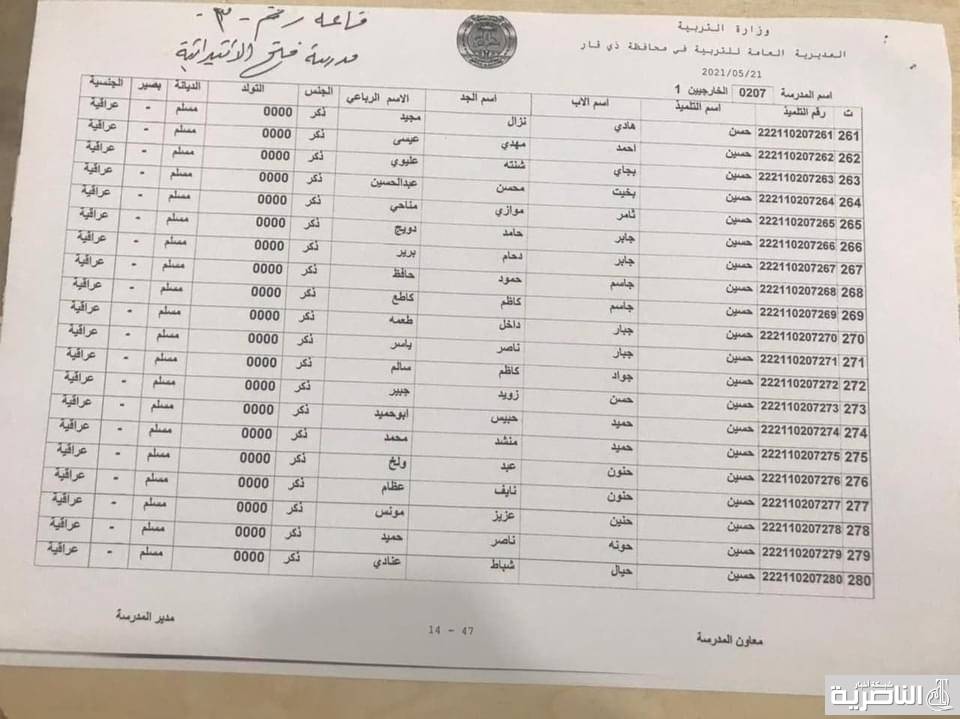 قاعه رقم -٣-
مدرسة فلق الابتدائية
وزارة التربية
المديرية العامة للتربية في محافظة ذي قار
2021/05/21
اسم المدرسة 0207 الخارجيين 1
ت رقم التلميذ اسم التلميذ اسم الاب اسم الجد الاسم الرباعي الجنس التولد الديانة بصير الجنسية
261 222110207261 حسن هادي نزال مجيد ذكر 0000 مسلم - عراقية
262 222110207262 حسين احمد مهدي عيسى ذكر 0000 مسلم - عراقية
263 222110207263 حسين بجاي شنته عليوي ذكر 0000 مسلم - عراقية
264 222110207264 حسين بخيت محسن عبدالحسين ذكر 0000 مسلم - عراقية
265 222110207265 حسين ثامر موازي مناحي ذكر 0000 مسلم - عراقية
266 222110207266 حسين جابر حامد دويج ذكر 0000 مسلم - عراقية
267 222110207267 حسين جابر دحام برير ذكر 0000 مسلم - عراقية
268 222110207268 حسين جاسم حمود حافظ ذكر 0000 مسلم - عراقية
269 222110207269 حسين جاسم كاظم كاطع ذكر 0000 مسلم - عراقية
270 222110207270 حسين جبار داخل طعمه ذكر 0000 مسلم - عراقية
271 222110207271 حسين جبار ناصر ياسر ذكر 0000 مسلم - عراقية
272 222110207272 حسين جواد كاظم سالم ذكر 0000 مسلم - عراقية
273 222110207273 حسين حسن زويد جبير ذكر 0000 مسلم - عراقية
274 222110207274 حسين حميد حبيس ابوحميد ذكر 0000 مسلم - عراقية
275 222110207275 حسين حميد منشد محمد ذكر 0000 مسلم - عراقية
276 222110207276 حسين حنون عبد ولخ ذكر 0000 مسلم - عراقية
277 222110207277 حسين حنون نايف عظام ذكر 0000 مسلم - عراقية
278 222110207278 حسين حنين عزيز مونس ذكر 0000 مسلم - عراقية
279 222110207279 حسين حونه ناصر حميد ذكر 0000 مسلم - عراقية
280 222110207280 حسين حيال شباط عنادي ذكر 0000 مسلم - عراقية
معاون المدرسة
14 - 47
مدير المدرسة
شبكة اخبار
الناصرية